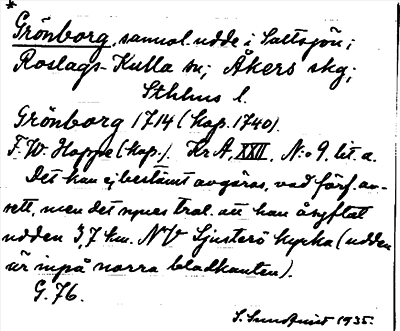 * Grönborg, sannol. udde i Saltsjön;
Roslags-Kulla sn; Åkers skg;
Sthlms l.
Grönborg 1714 (kop. 1740).
F. W. Hoppe (kop.). Kr A, XXII, N:o 9, lit. a.
Det kan ej bestämt avgöras, vad förf. av-
sett, men det synes trol. att han åsyftat
udden 3,7 km. NV Ljusterö kyrka (udden
är inpå norra bladkanten).
G. 76.
S. Sundquist 1935.